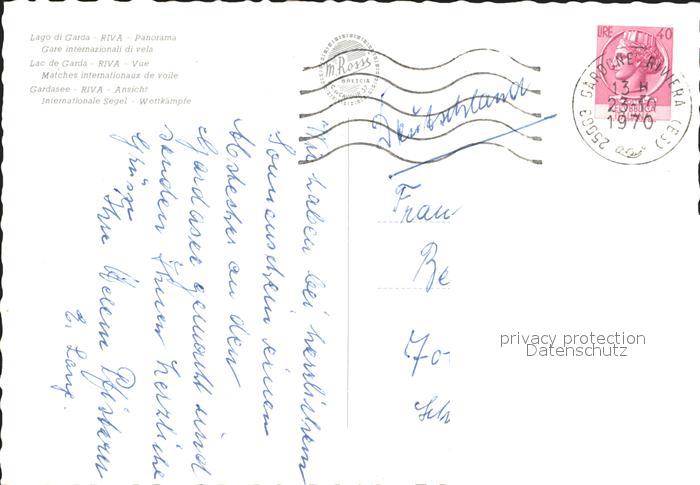 Lago di Garda - RIVA - Panorama
Gare internazionali di vela
Lac de Garda - RIVA - Vue
Matches internationaux de voile
Gardasee - RIVA - Ansicht
Internationale Segel - Wettkämpfe
M. Rossi
BRESCIA
LIRE 40
25083 GARDONE RIVIERA (BS)
13 H
23·10
1970
Deutschland
Frau
Be
70-
Sch
privacy protection
Datenschutz
Wir haben bei herrlichem
Sonnenschein einen
Abstecher an den
Gardasee gemacht und
senden Ihnen herzliche
Grüße
Ihre Helene Pfisterer
E. Lang.